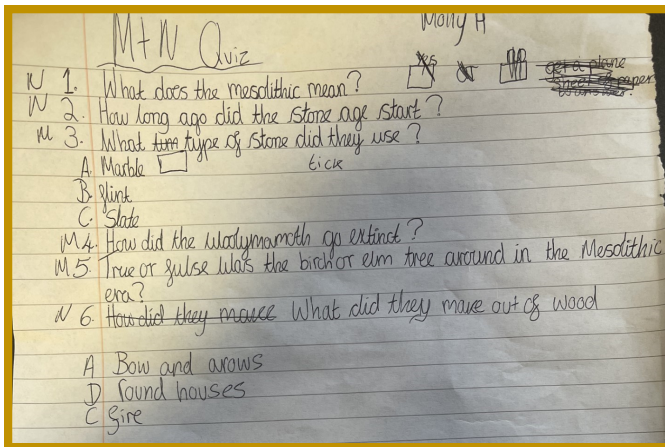 M+N Quiz
Molly H
N 1. What does the mesolithic mean?
yes or
get a plane
sheet of paper
N 2. How long ago did the stone age start?
M 3. What type of stone did they use?
A. Marble tick
B. flint
C. Slate
M 4. How did the woolymamoth go extinct?
M 5. True or fulse was the birch or elm tree around in the Mesolithic
era?
N 6. How did they make What did they make out of wood
A Bow and arows
D round houses
C fire